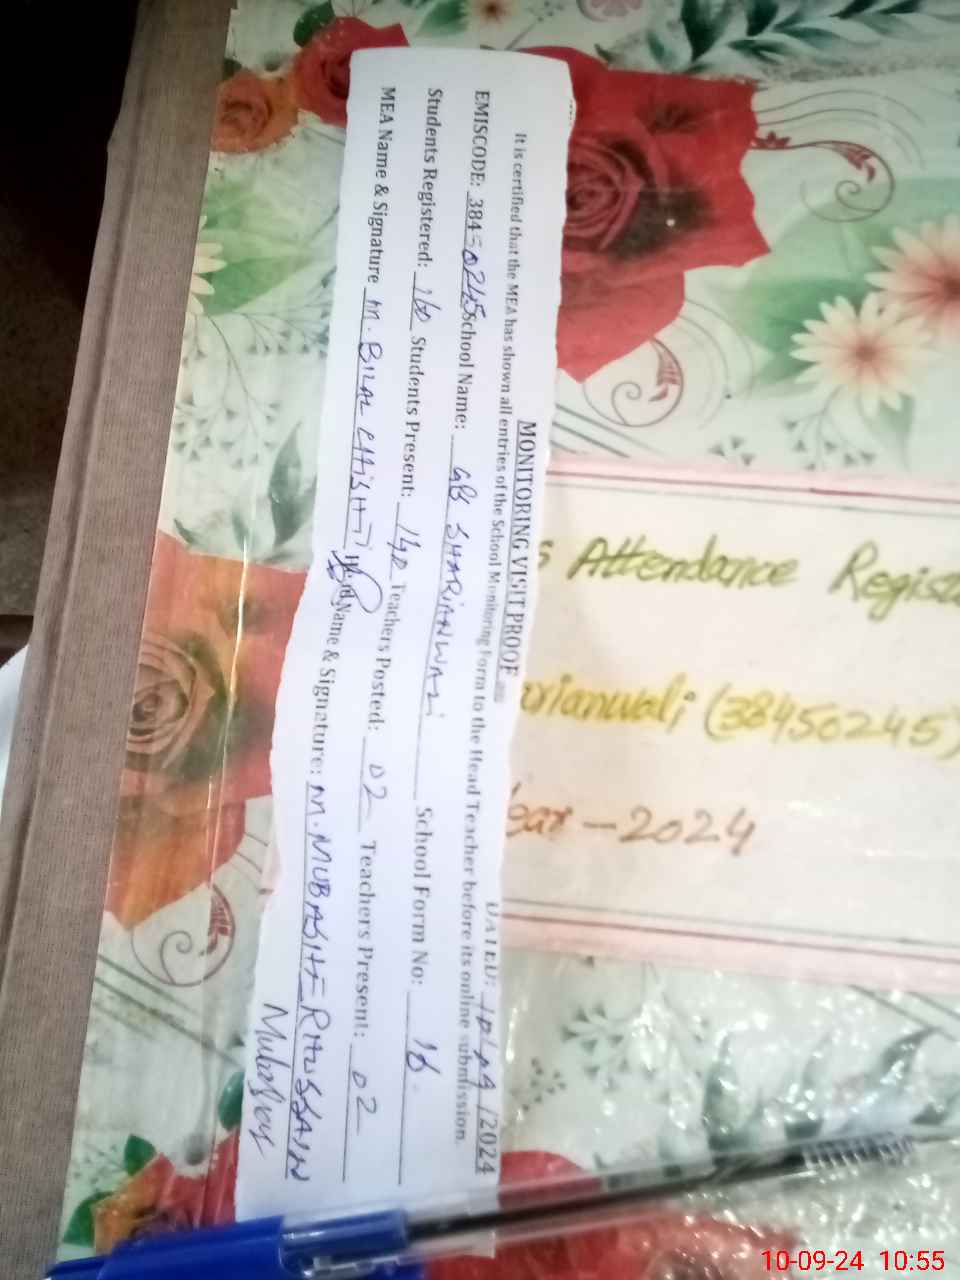 MONITORING VISIT PROOF
DATED: 10/09/2024
It is certified that the MEA has shown all entries of the School Monitoring Form to the Head Teacher before its online submission.
EMISCODE: 38450245 School Name: GPS SHARIANWALI School Form No: 16
Students Registered: 160 Students Present: 140 Teachers Posted: 02 Teachers Present: 02
MEA Name & Signature M. BILAL CHISHTI Name & Signature: M. MUBASHER HUSSAIN
s Attendance Regis
arianwali (38450245)
Year - 2024
10-09-24 10:55